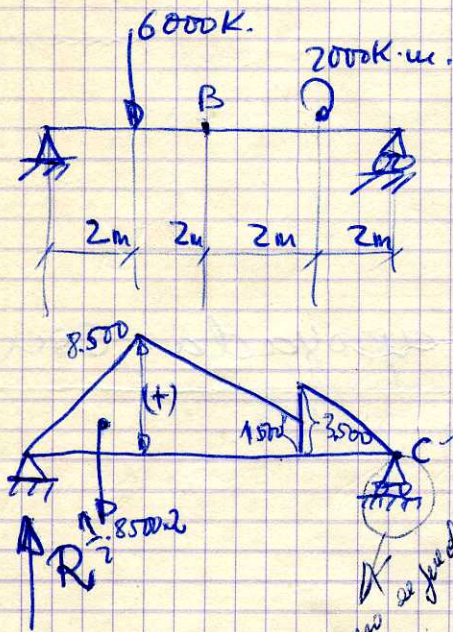 6000K.
2000K·m.
B
2m 2m 2m 2m
8.500
(+)
1500 3500
C
½·8500·2
R